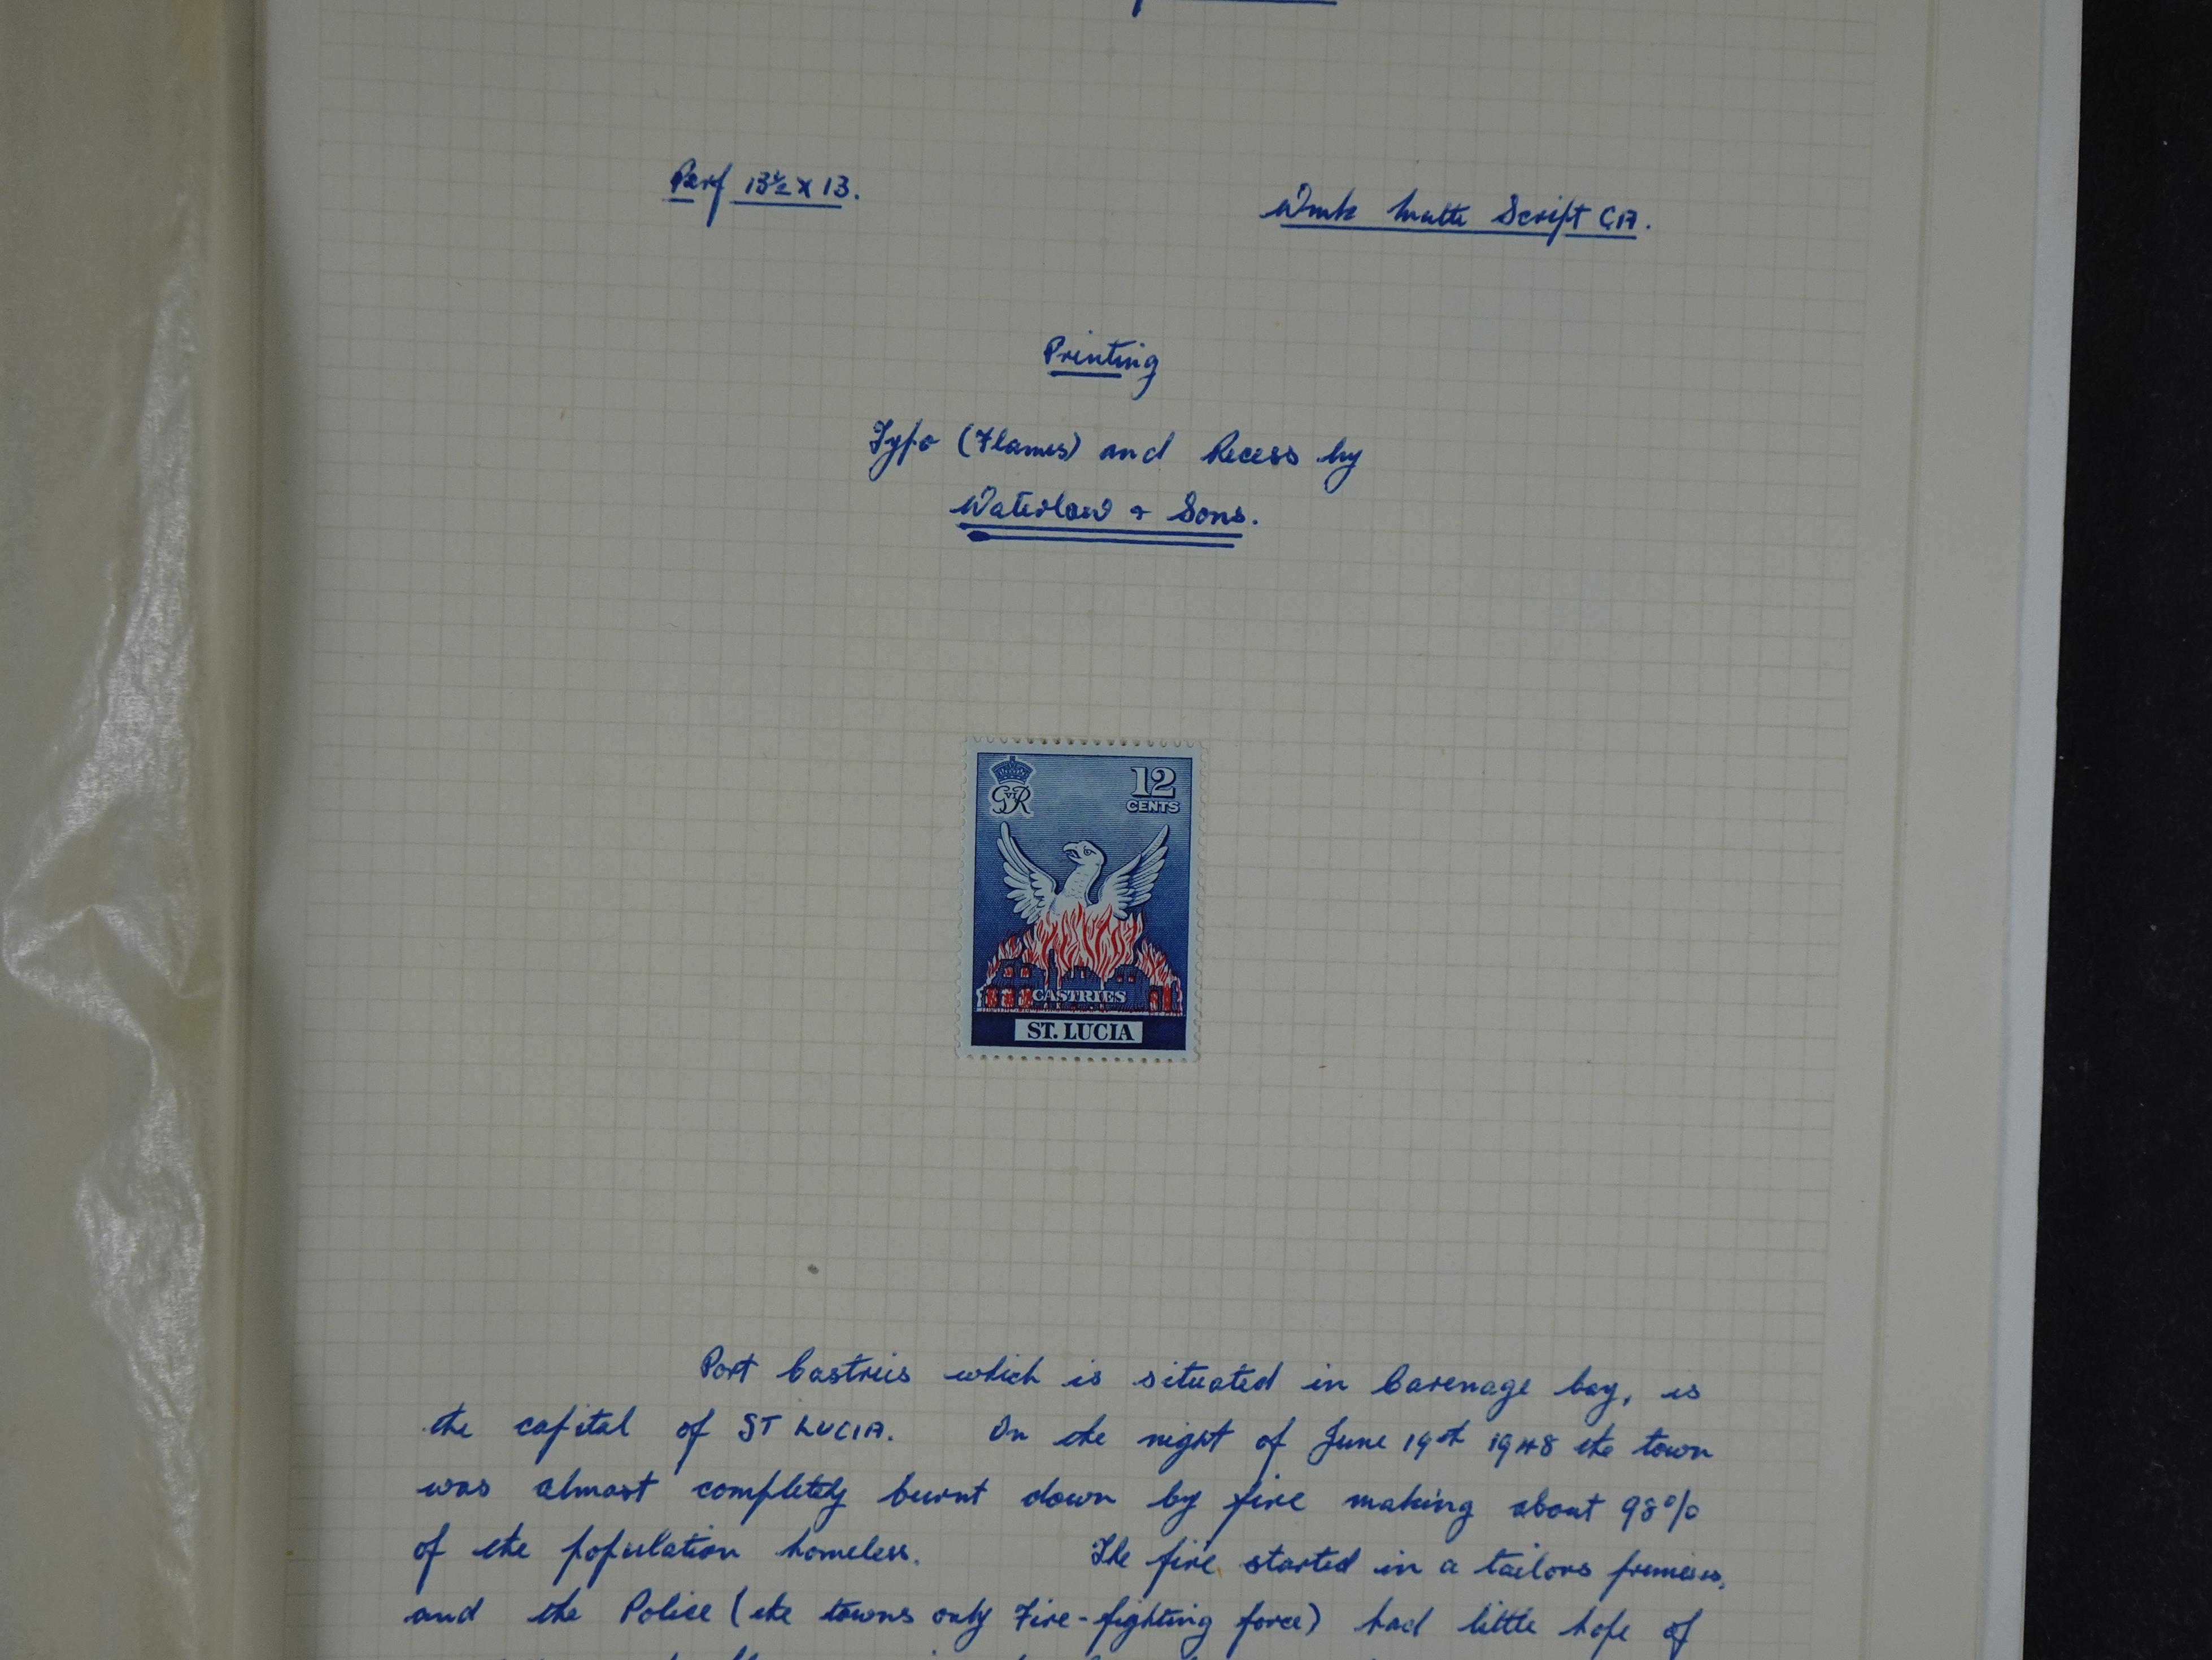 Perf 13½ x 13.
Wmk Multi Script CA.
Printing
Typo (Flames) and Recess by
Waterlow & Sons.
12
CENTS
GVIR
CASTRIES
ST. LUCIA
Port Castries which is situated in Carenage bay, is
the capital of ST LUCIA. On the night of June 19th 1948 the town
was almost completely burnt down by fire making about 98%
of the population homeless. The fire started in a tailors premises,
and the Police (the towns only Fire-fighting force) had little hope of